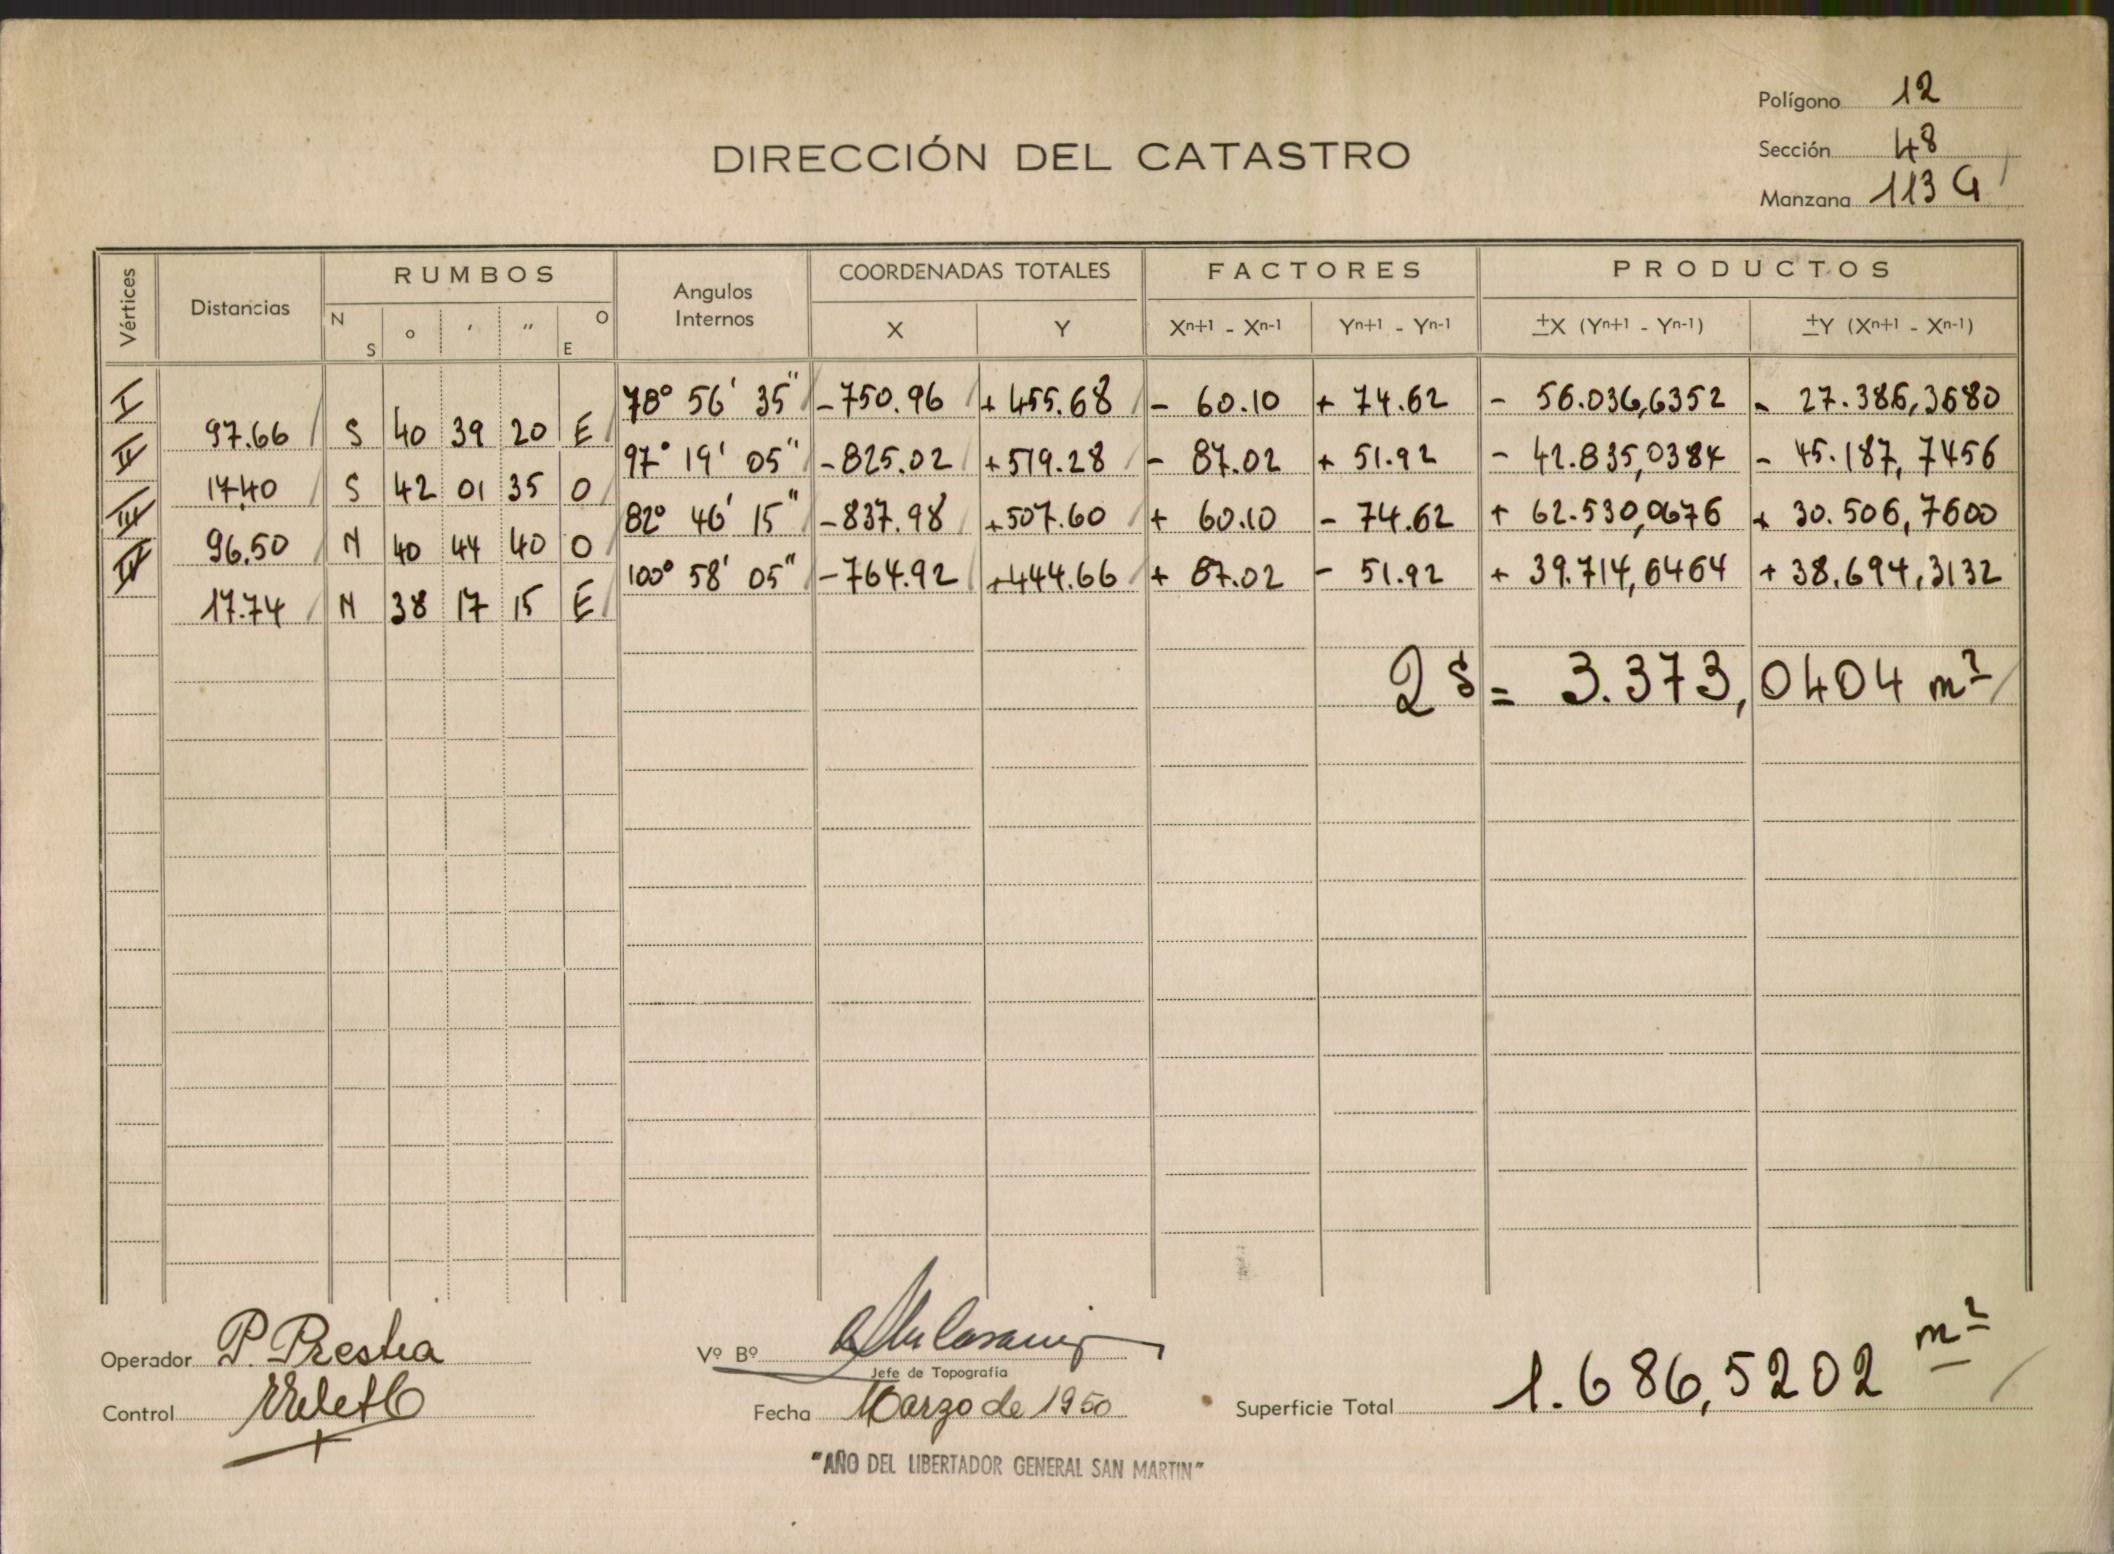 Polígono 12
Sección 48
Manzana 113 G
DIRECCIÓN DEL CATASTRO
Vértices Distancias RUMBOS Angulos Internos COORDENADAS TOTALES FACTORES PRODUCTOS
N S ° ′ ″ O E X Y Xn+1 - Xn-1 Yn+1 - Yn-1 ±X (Yn+1 - Yn-1) ±Y (Xn+1 - Xn-1)
I 78° 56' 35" -750.96 +455.68 - 60.10 + 74.62 - 56.036,6352 - 27.386,3680
97.66 S 40 39 20 E
II 97° 19' 05" -825.02 +519.28 - 87.02 + 51.92 - 42.835,0384 - 45.187,7456
17.40 S 42 01 35 O
III 82° 46' 15" -837.98 +507.60 + 60.10 - 74.62 + 62.530,0676 + 30.506,7600
96.50 N 40 44 40 O
IV 100° 58' 05" -764.92 +444.66 + 87.02 - 51.92 + 39.714,6464 + 38.694,3132
17.74 N 38 17 15 E
2S = 3.373,0404 m²
Operador P. Prestia
Vº Bº
Jefe de Topografía
Control
Fecha Marzo de 1950
Superficie Total 1.686,5202 m²
"AÑO DEL LIBERTADOR GENERAL SAN MARTIN"